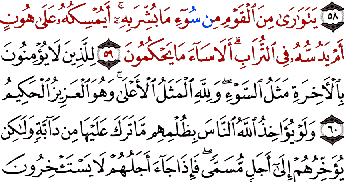 ٥٨ يَتَوَارَىٰ مِنَ الْقَوْمِ مِن سُوٓءِ مَا بُشِّرَ بِهِۦٓ ۚ أَيُمْسِكُهُۥ عَلَىٰ هُونٍ
أَمْ يَدُسُّهُۥ فِي التُّرَابِ ۗ أَلَا سَآءَ مَا يَحْكُمُونَ ٥٩ لِلَّذِينَ لَا يُؤْمِنُونَ
بِالْآخِرَةِ مَثَلُ السَّوْءِ ۖ وَلِلَّهِ الْمَثَلُ الْأَعْلَىٰ ۚ وَهُوَ الْعَزِيزُ الْحَكِيمُ
٦٠ وَلَوْ يُؤَاخِذُ اللَّهُ النَّاسَ بِظُلْمِهِم مَّا تَرَكَ عَلَيْهَا مِن دَآبَّةٍ وَلَٰكِن
يُؤَخِّرُهُمْ إِلَىٰٓ أَجَلٍ مُّسَمًّى ۖ فَإِذَا جَآءَ أَجَلُهُمْ لَا يَسْتَـْٔخِرُونَ